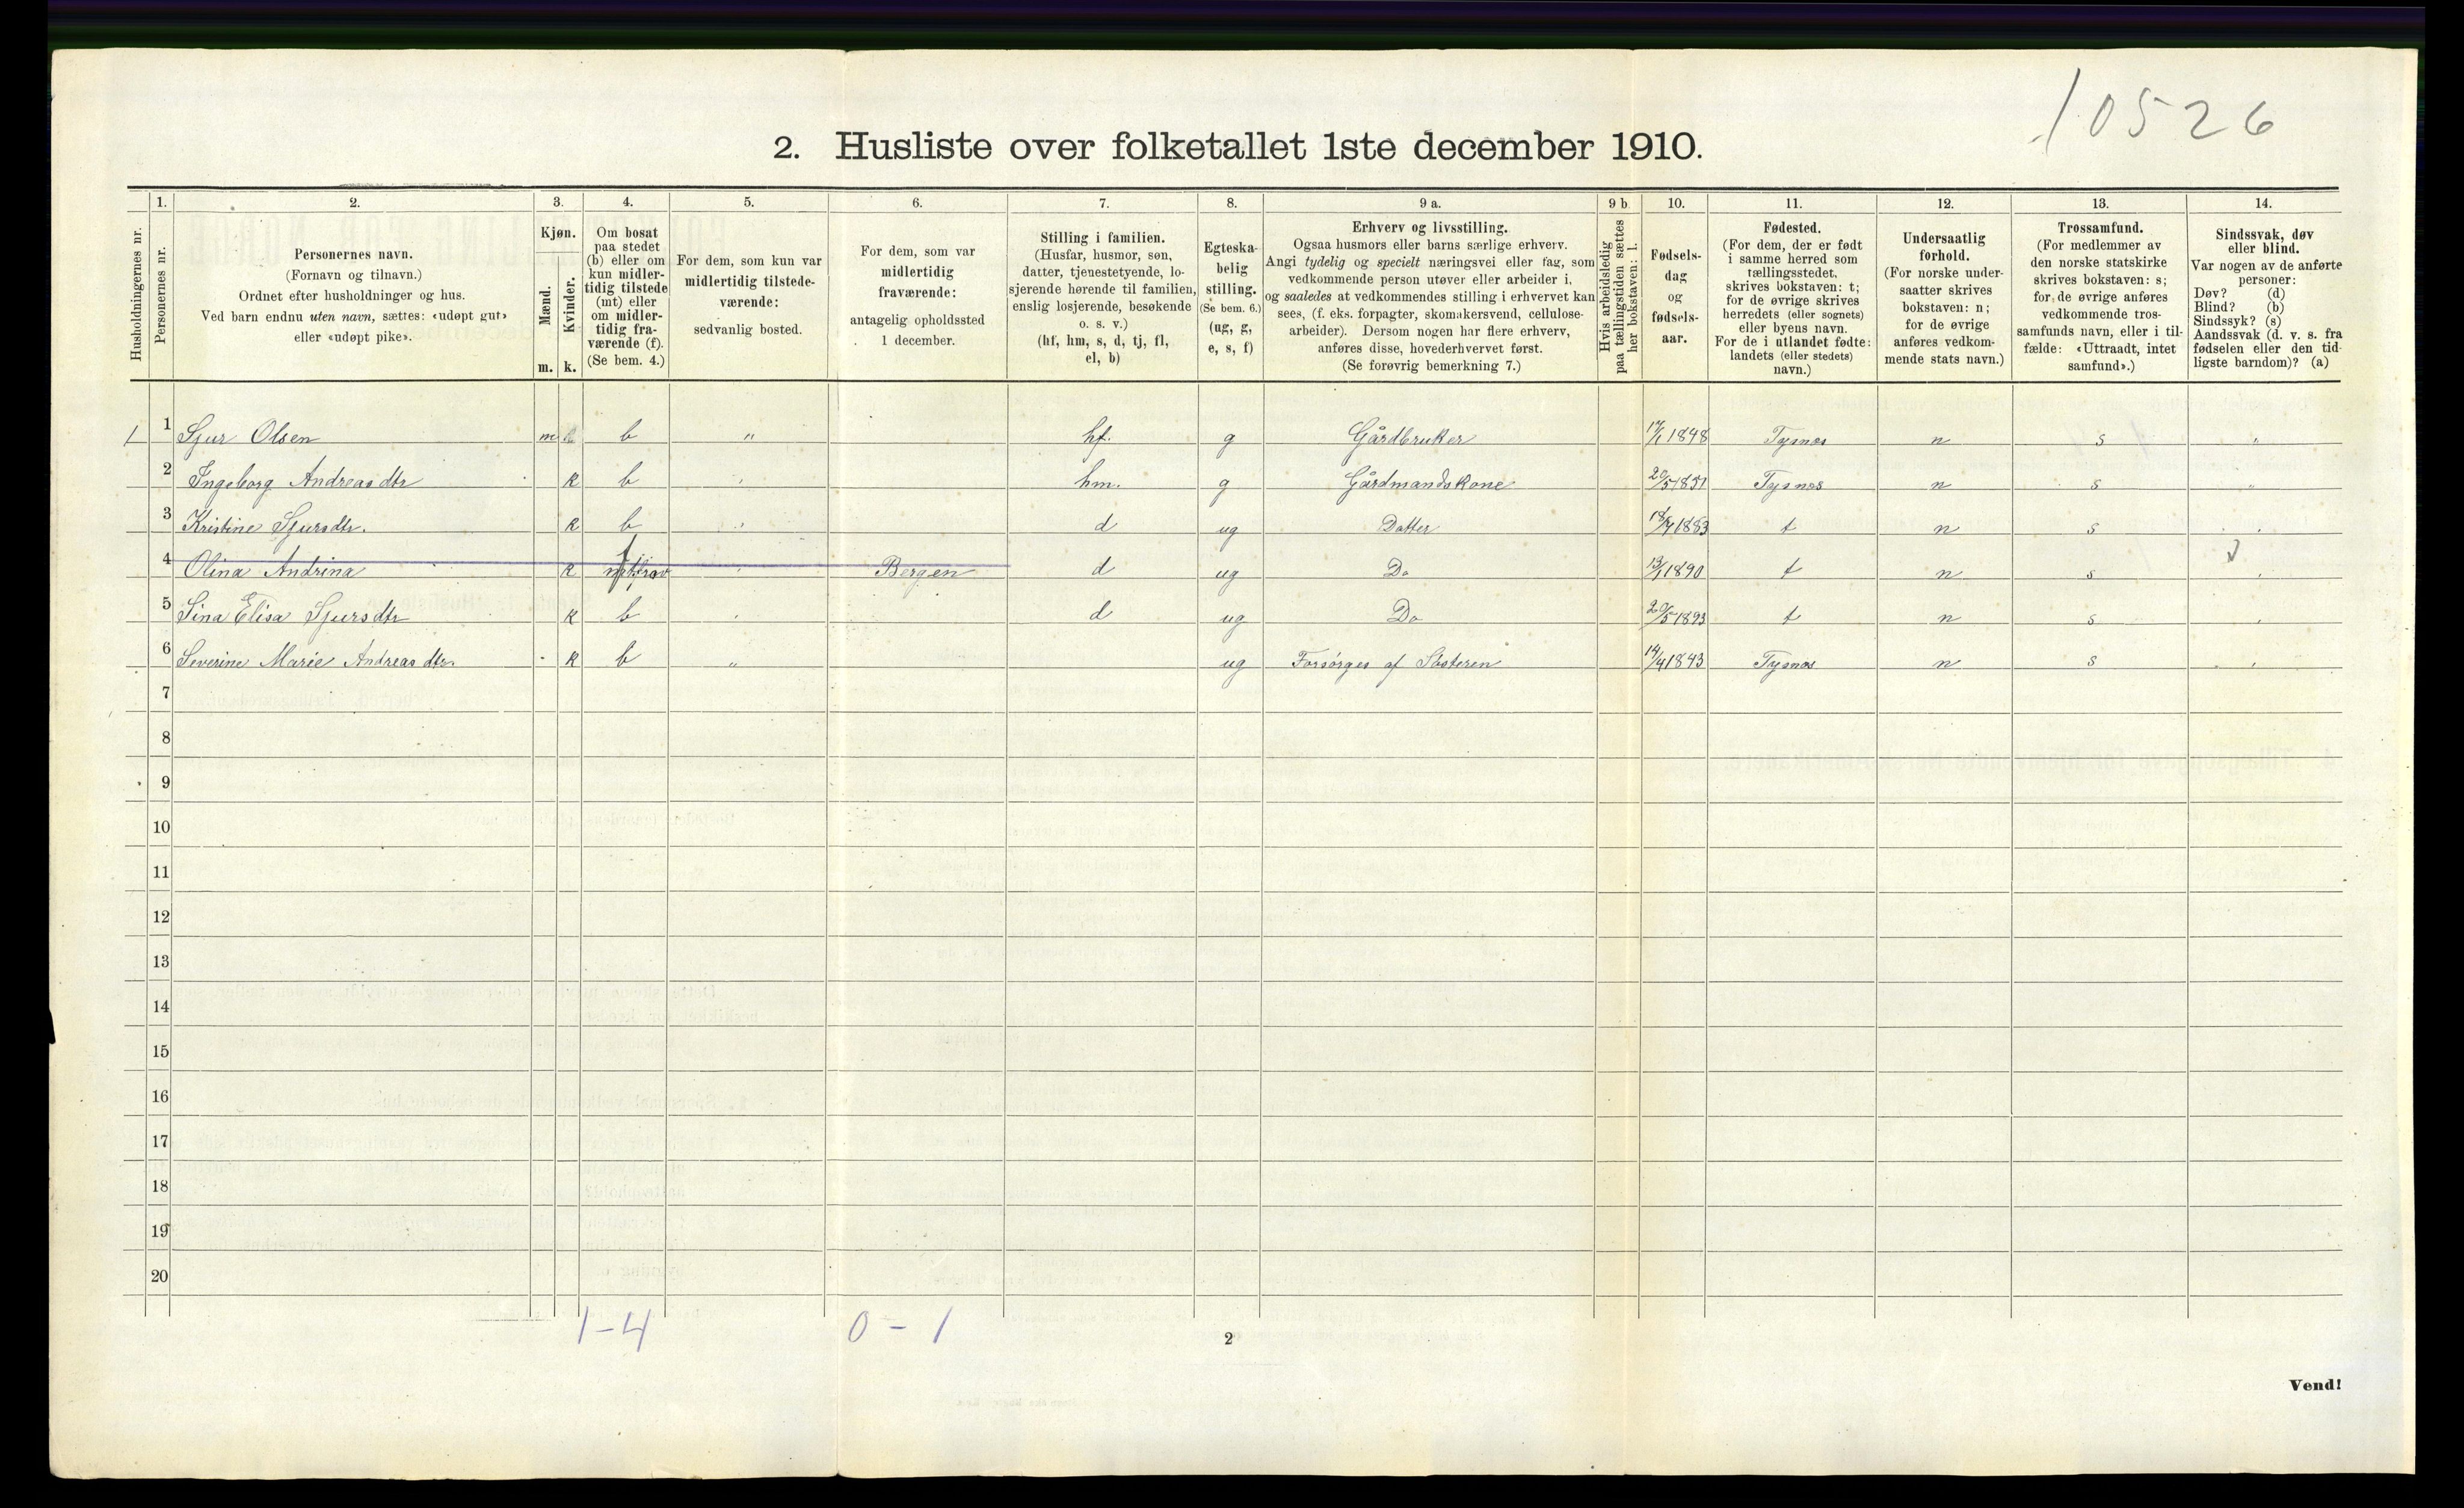 10526
2. Husliste over folketallet 1ste december 1910.
Husholdningernes nr.
1. Personernes nr.
2. Personernes navn. (Fornavn og tilnavn.) Ordnet efter husholdninger og hus. Ved barn endnu uten navn, sættes: «udøpt gut» eller «udøpt pike».
3. Kjøn. Mænd. m. Kvinder. k.
4. Om bosat paa stedet (b) eller om kun midlertidig tilstede (mt) eller om midlertidig fraværende (f). (Se bem. 4.)
5. For dem, som kun var midlertidig tilstedeværende: sedvanlig bosted.
6. For dem, som var midlertidig fraværende: antagelig opholdssted 1 december.
7. Stilling i familien. (Husfar, husmor, søn, datter, tjenestetyende, losjerende hørende til familien, enslig losjerende, besøkende o. s. v.) (hf, hm, s, d, tj, fl, el, b)
8. Egteskabelig stilling. (Se bem. 6.) (ug, g, e, s, f)
9 a. Erhverv og livsstilling. Ogsaa husmors eller barns særlige erhverv. Angi tydelig og specielt næringsvei eller fag, som vedkommende person utøver eller arbeider i, og saaledes at vedkommendes stilling i erhvervet kan sees, (f. eks. forpagter, skomakersvend, cellulosearbeider). Dersom nogen har flere erhverv, anføres disse, hovederhvervet først. (Se forøvrig bemerkning 7.)
9 b Hvis arbeidsledig paa tællingstiden sættes her bokstaven: l.
10. Fødselsdag og fødselsaar.
11. Fødested. (For dem, der er født i samme herred som tællingsstedet, skrives bokstaven: t; for de øvrige skrives herredets (eller sognets) eller byens navn. For de i utlandet fødte: landets (eller stedets) navn.)
12. Undersaatlig forhold. (For norske undersaatter skrives bokstaven: n; for de øvrige anføres vedkommende stats navn.)
13. Trossamfund. (For medlemmer av den norske statskirke skrives bokstaven: s; for de øvrige anføres vedkommende trossamfunds navn, eller i tilfælde: «Uttraadt, intet samfund».)
14. Sindssvak, døv eller blind. Var nogen av de anførte personer: Døv? (d) Blind? (b) Sindssyk? (s) Aandssvak (d. v. s. fra fødselen eller den tidligste barndom)? (a)
1 1 Sjur Olsen m b " hf. g Gårdbruker 17/1 1848 Tysnes n s "
2 Ingeborg Andreasdtr k b " hm. g Gårdmandskone 20/5 1851 Tysnes n s "
3 Kristine Sjursdtr. k b " d ug Datter 18/7 1883 t n s "
4 Olina Andrina k f Bergen d ug Do 13/1 1890 t n s
5 Sina Elisa Sjursdtr k b d ug Do 20/5 1893 t n s
6 Severine Marie Andreasdtr. k b " ug Forsørges af Søsteren 14/4 1843 Tysnes n s
7
8
9
10
11
12
13
14
15
16
17
18
19
20
1-4 0-1
2
Vend!